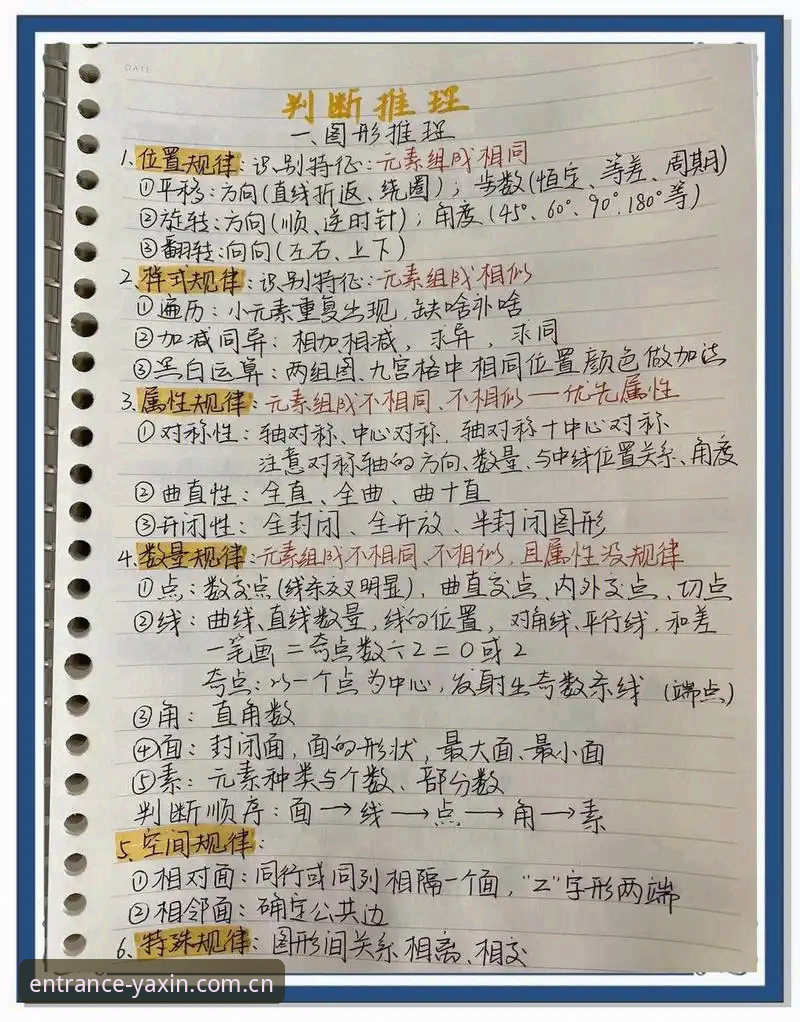 DATE
判断推理
一、图形推理
1. 位置规律：识别特征：元素组成相同
①平移：方向(直线折返、绕圈)；步数(恒定、等差、周期)
②旋转：方向(顺、逆时针)；角度(45°、60°、90°、180°等)
③翻转：向向(左右、上下)
2. 样式规律：识别特征：元素组成相似
①遍历：小元素重复出现，缺啥补啥
②加减同异：相加相减，求异，求同
③黑白运算：两组图、九宫格中相同位置颜色做加法
3. 属性规律：元素组成不相同、不相似——优先属性
①对称性：轴对称、中心对称，轴对称+中心对称
注意对称轴的方向、数量、与中线位置关系、角度
②曲直性：全直、全曲、曲+直
③开闭性：全封闭、全开放、半封闭图形
4. 数量规律：元素组成不相同、不相似，且属性没规律
①点：数交点(线条交叉明显)，曲直交点、内外交点、切点
②线：曲线、直线数量，线的位置，对角线、平行线，和差
一笔画=奇点数÷2=0或2
奇点：以一个点为中心，发射出奇数条线(端点)
③角：直角数
④面：封闭面，面的形状，最大面、最小面
⑤素：元素种类与个数、部分数
判断顺序：面→线→点→角→素
5. 空间规律：
①相对面：同行或同列相隔一个面，"Z"字形两端
②相邻面：确定公共边
6. 特殊规律：图形间关系 相离、相交
entrance-yaxin.com.cn